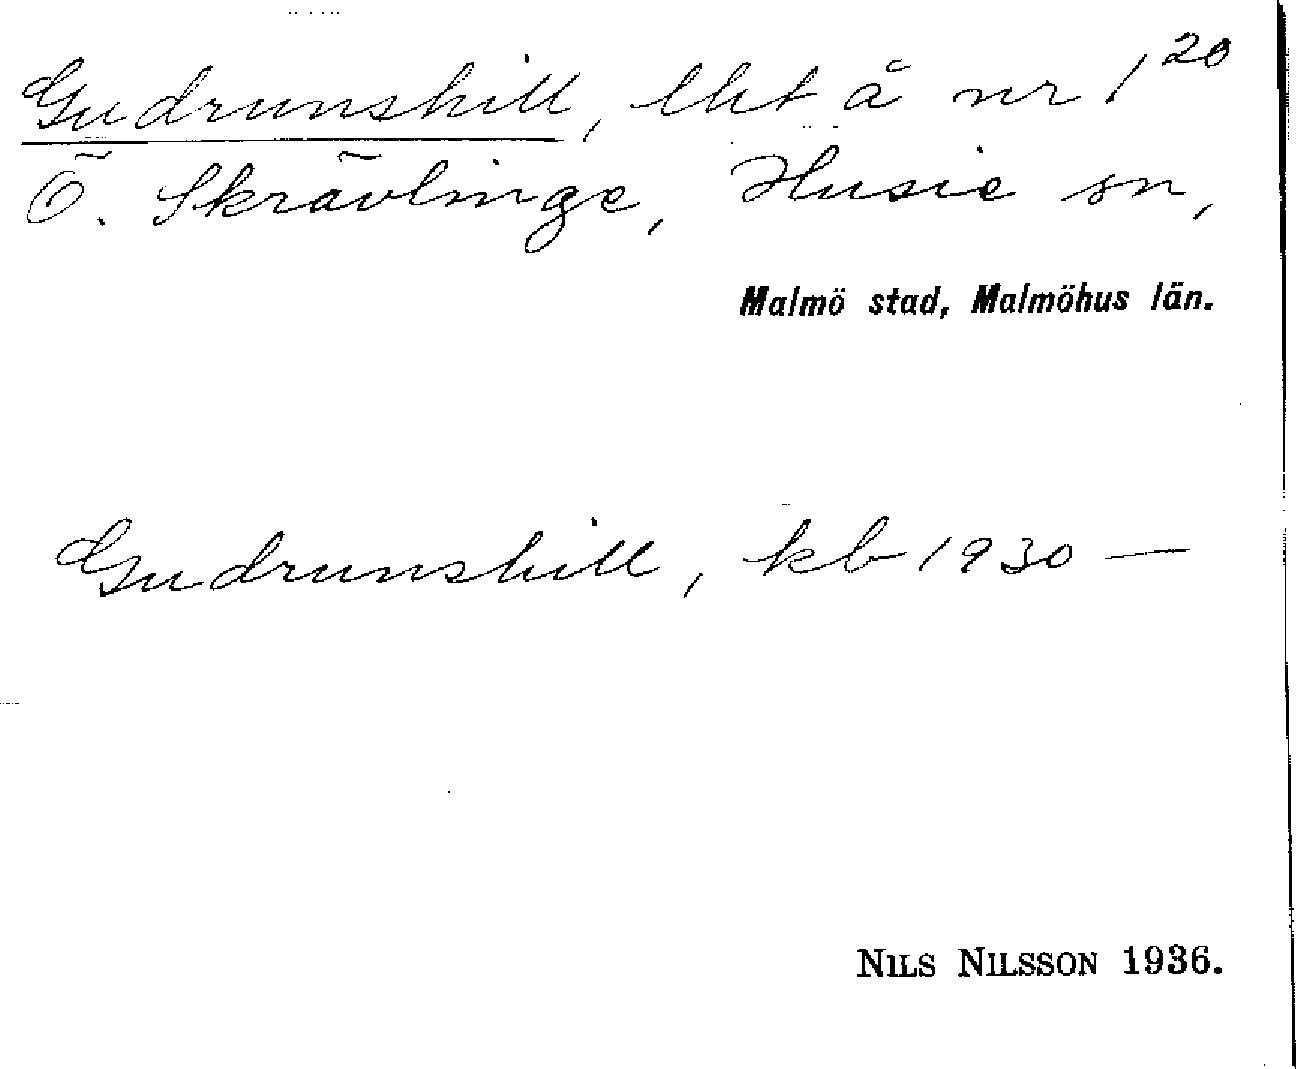 Gudrunshill, lht å nr 1²⁰
Ö. Skrävlinge, Husie sn,
Malmö stad, Malmöhus län.
Gudrunshill, kb 1930 —
NILS NILSSON 1936.